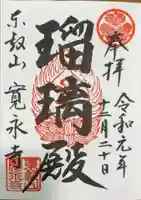 奉拝
令和元年
十二月二十日
瑠璃殿
东叡山
寛永寺